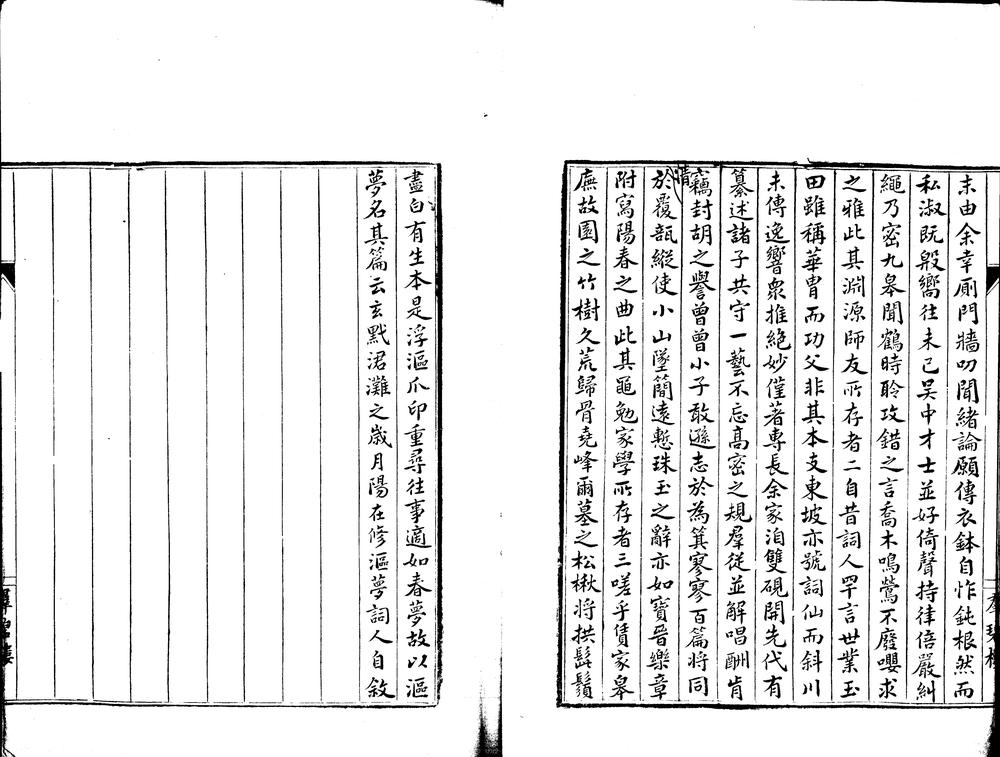 末由余幸廁門牆叨聞緒論願傳衣鉢自怍鈍根然而
私淑旣殷嚮往未已吳中才士並好倚聲持律倍嚴糾
繩乃密九皋聞鶴時聆攻錯之言喬木鳴鶯不廢嚶求
之雅此其淵源師友所存者二自昔詞人罕言世業玉
田雖稱華冑而功父非其本支東坡亦號詞仙而斜川
未傳逸響衆推絶妙僅著專長余家洎雙硯開先代有
纂述諸子共守一藝不忘高密之規羣從並解唱酬肯
竊封胡之譽曾曾小子敢遜志於為箕寥寥百篇將同
於覆瓿縱使小山墜簡遠慙珠玉之辭亦如寶晉樂章
附寫陽春之曲此其黽勉家學所存者三嗟乎賃家皋
廡故園之竹樹久荒歸骨堯峰爾墓之松楸将拱髭鬚
盡白有生本是浮漚爪印重尋往事適如春夢故以漚
夢名其篇云玄黓涒灘之歲月陽在修漚夢詞人自敘
羣碧樓
羣碧樓